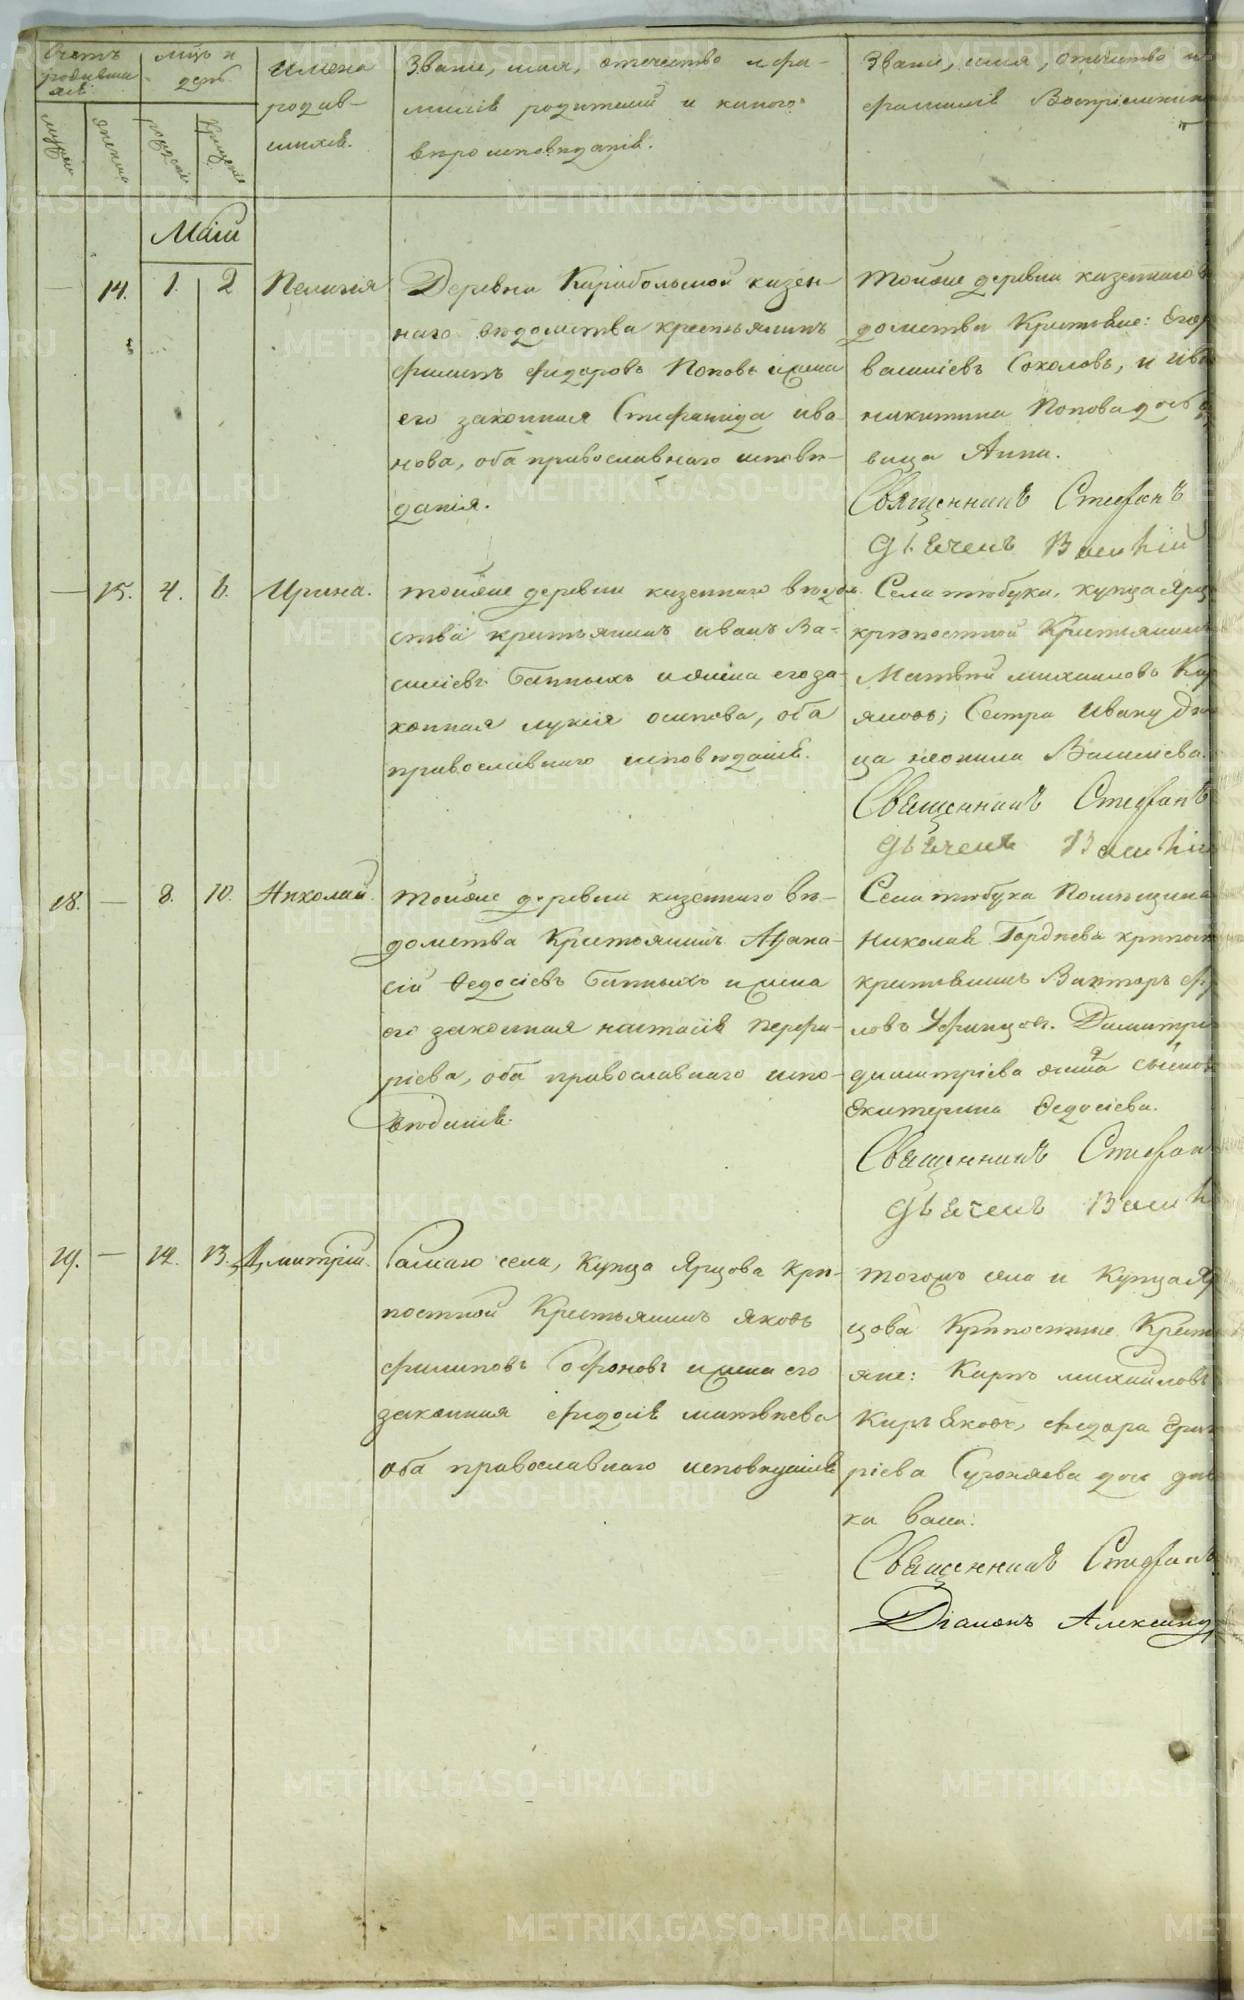 Счетъ родивших
мцъ и день
Имена родив-
шихся.
Званіе, имя, отечество и фа-
милія родителей и какого
вѣроисповѣданія.
Званіе, имя, отечество и
фамилія Воспріемник
мужеска
женска
рожденія
крещенія
Маій
14. 1. 2 Пелагія
Деревни Карабольской казен-
наго вѣдомства крестьянинъ
Филипъ Федоровъ Поповъ и жена
его законная Стефанида Ива-
нова, оба православнаго исповѣ-
данія.
Тойже деревни казеннаго вѣ
домства Крестьяне: Егор
Васильевъ Соколовъ, и Ива
Никитина Попова дочь дѣ
вица Анна.
Священникъ Стефанъ
Дьячекъ Василій
15. 4. 6. Ирина.
Тойже деревни казеннаго вѣдом
ства крестьянинъ Иванъ Ва-
сильевъ Банныхъ и жена его за-
конная Лукія Осипова, оба
православнаго исповѣданія.
Села Тюбука, купца Ярц
крѣпостной Крестьянинъ
Матвѣй Михайловъ Кир
яковъ; Сестра Ивану дѣв
ца Неонила Васильева.
Священникъ Стефанъ
Дьячекъ Василій
18. 8. 10. Николай.
Тойже деревни казеннаго вѣ-
домства Крестьянинъ Афана-
сій Федосіевъ Банныхъ и жена
его законная Настасія Перфи-
ріева, оба православнаго испо-
вѣданія.
Села Тюбука Помѣщика
Николая Гордѣева крѣпост
крестьянинъ Викторъ
ловъ Уфинцовъ. Димитрі
Димитріева жена
Екатерина Федосіева.
Священникъ Стефан
Дьячекъ Васил
19. 12. 13. Дмитрій.
Самаго села, Купца Ярцова Крѣ-
постной Крестьянинъ Яковъ
Филиповъ Софоновъ и жена его
законная Федосія Матвѣева
оба православнаго исповѣданія
Тогожъ села и Купца Яр
цова Крѣпостные Крест
яне: Карпъ Михайловъ
Кирьяковъ, Федора Григ
ріева Сугоняева дочь дѣв
ка Васа.
Священникъ Стефанъ
Діаконъ Александ